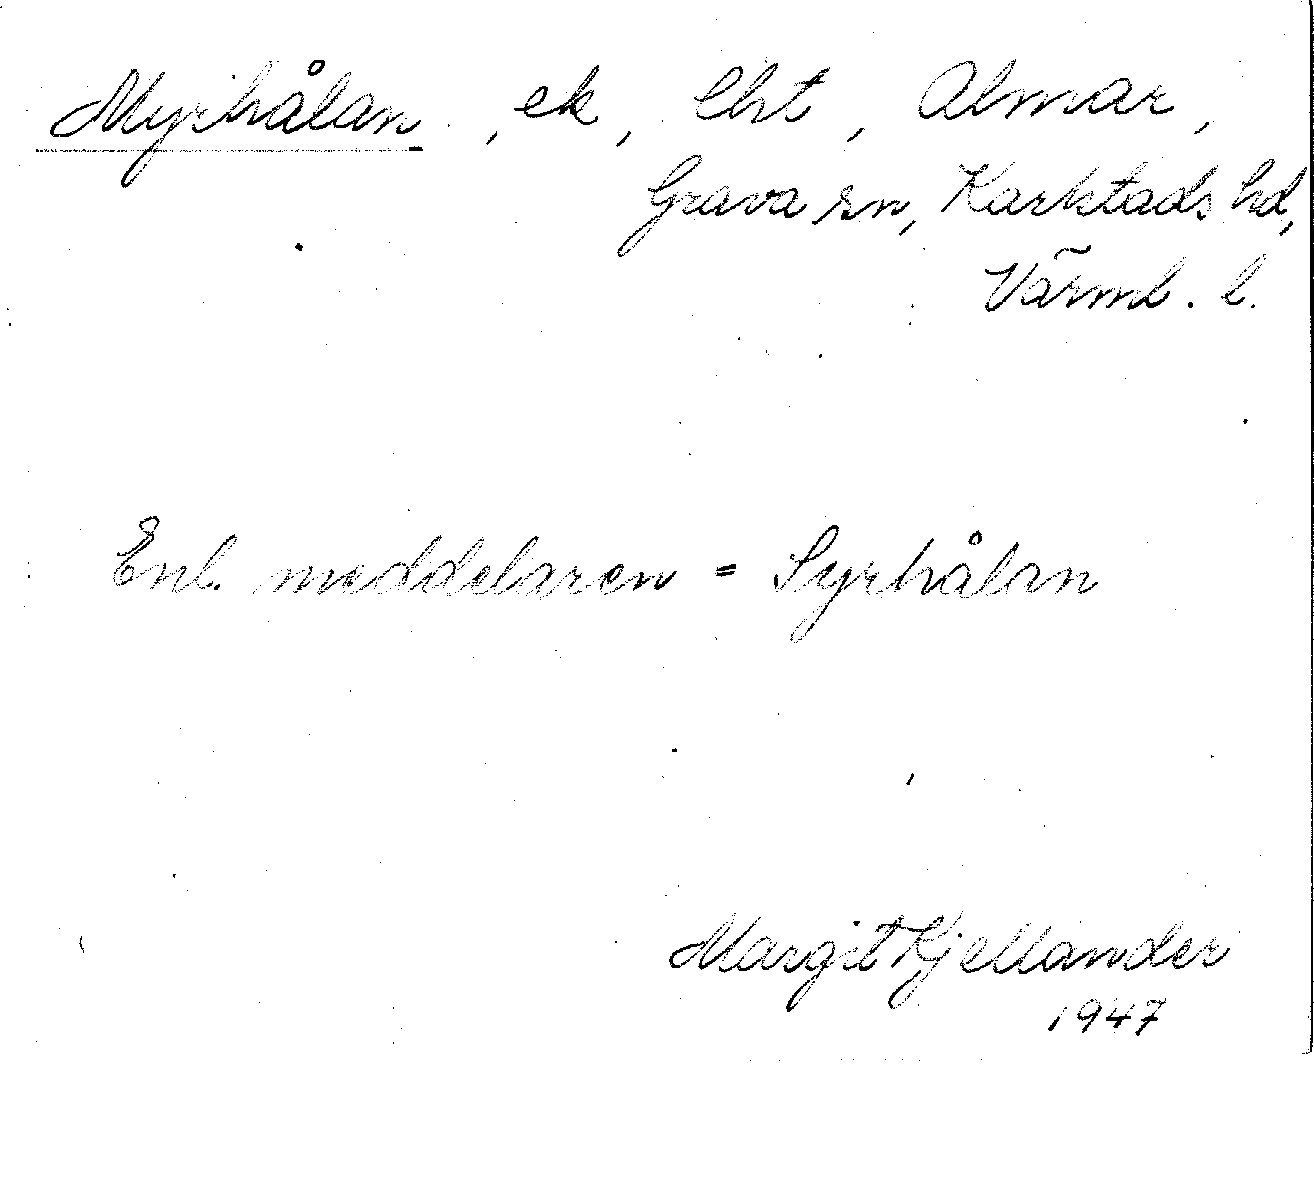 Myrhålan, ek, lht, Almar,
Grava sn, Karlstads hd,
Värml. l.
Enl. meddelaren = Syrhålan
Margit Kjellander
1947